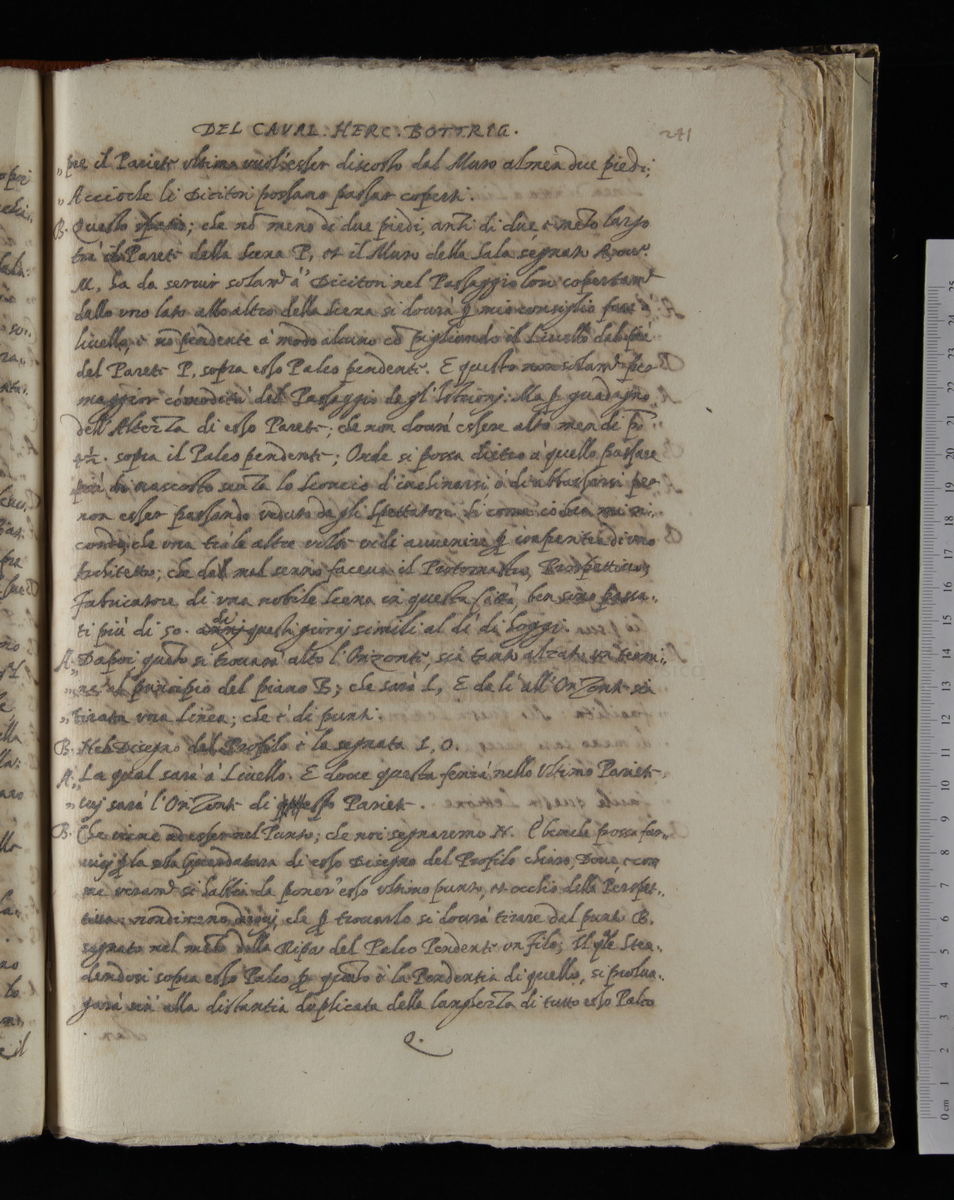 DEL CAVAL. HERC. BOTTRIG.
241
pre il Pariete ultima esser discosto dal Muro almen due piedi;
„ Accioche li Dicitori possano passar coperti.
B. Questo spatio; che nō meno di due piedi, anti di due e mezo largo
trà il Parete della Scena P, et il Muro della Sala segnato
M, ha da servir solamᵗᵉ a' Dicitori nel Passaggio loro copertamᵗᵉ
dallo uno lato allo altro della Scena si dovrà ꝑ mio consiglio fare à
livello, e nō pendente a modo alcuno pigliando il Livello dal piè
del Parete P, sopra esso Palco pendente. E questo non solamᵗᵉ per
maggior cōmodità del Passaggio de gl'Istrioni: Ma ꝑ guadagno
dell'Altezza di esso Parete; che non dovrà essere alto men de pi
4½. sopra il Palco pendente; Onde si possa dietro à quello passare
più di nascosto senza lo sconcio d'inclinarsi ò di abbassarsi per
non esser passando veduto da gli Spettatori. Si come
che una trà le altre volte vidi avvenire ꝑ imperitia di uno
Architetto; che del mal senno faceva il Protomastro, Prospettivo,
Fabricatore di una nobile Scena in questa Città, ben sono passa-
ti più di 50. anni di questi giorni simili al dì di hoggi.
A. Dapoi quanto si troverà alto l'Orizonte, sia tanto alzato un termi-
„ ne al principio del piano B; che sarà L, E da lì all'OriZonte sia
„ tirata una linea; che è di punti.
B. Nel Disegno del Profilo è la segnata L, O.
A. La qual sarà à Livello. E dove questa ferirà nello Ultimo Pariete,
„ ivi sarà l'OriZonte di questo Pariete.
B. Che viene ad esser nel Punto; che noi segnaremo N. E benche possa far-
ꝑ la di esso Disegno del Profilo chiaro, Dove, e com
me veramᵗᵉ si habbia da poner' esso ultimo punto, et occhio della Perspet-
tiva: nondimeno che ꝑ trovarlo si dovrà tirare dal punto B.
segnato nel mezo della Ripa del Palco Pendente un filo; Il qle Sten-
dendosi sopra esso Palco ꝑ quanto è la Pendentia di quello, si prolun-
garà sin' alla distantia duplicata della larghezza di tutto esso Palco